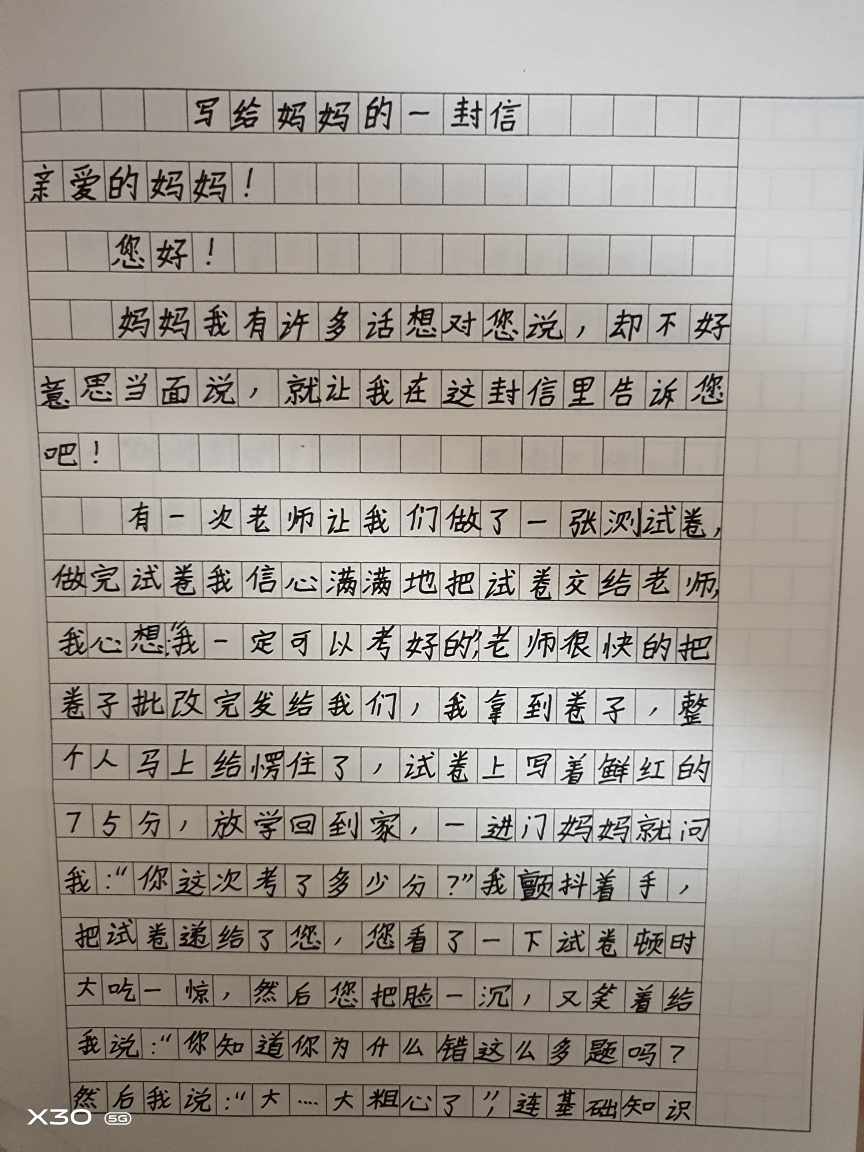 写给妈妈的一封信
亲爱的妈妈！
您好！
妈妈我有许多话想对您说，却不好
意思当面说，就让我在这封信里告诉您
吧！
有一次老师让我们做了一张测试卷，
做完试卷我信心满满地把试卷交给老师，
我心想：“我一定可以考好的”，老师很快的把
卷子批改完发给我们，我拿到卷子，整
个人马上给愣住了，试卷上写着鲜红的
75分，放学回到家，一进门妈妈就问
我：“你这次考了多少分？”我颤抖着手，
把试卷递给了您，您看了一下试卷顿时
大吃一惊，然后您把脸一沉，又笑着给
我说：“你知道你为什么错这么多题吗？
然后我说：“大……大粗心了”，连基础知识
X30 5G